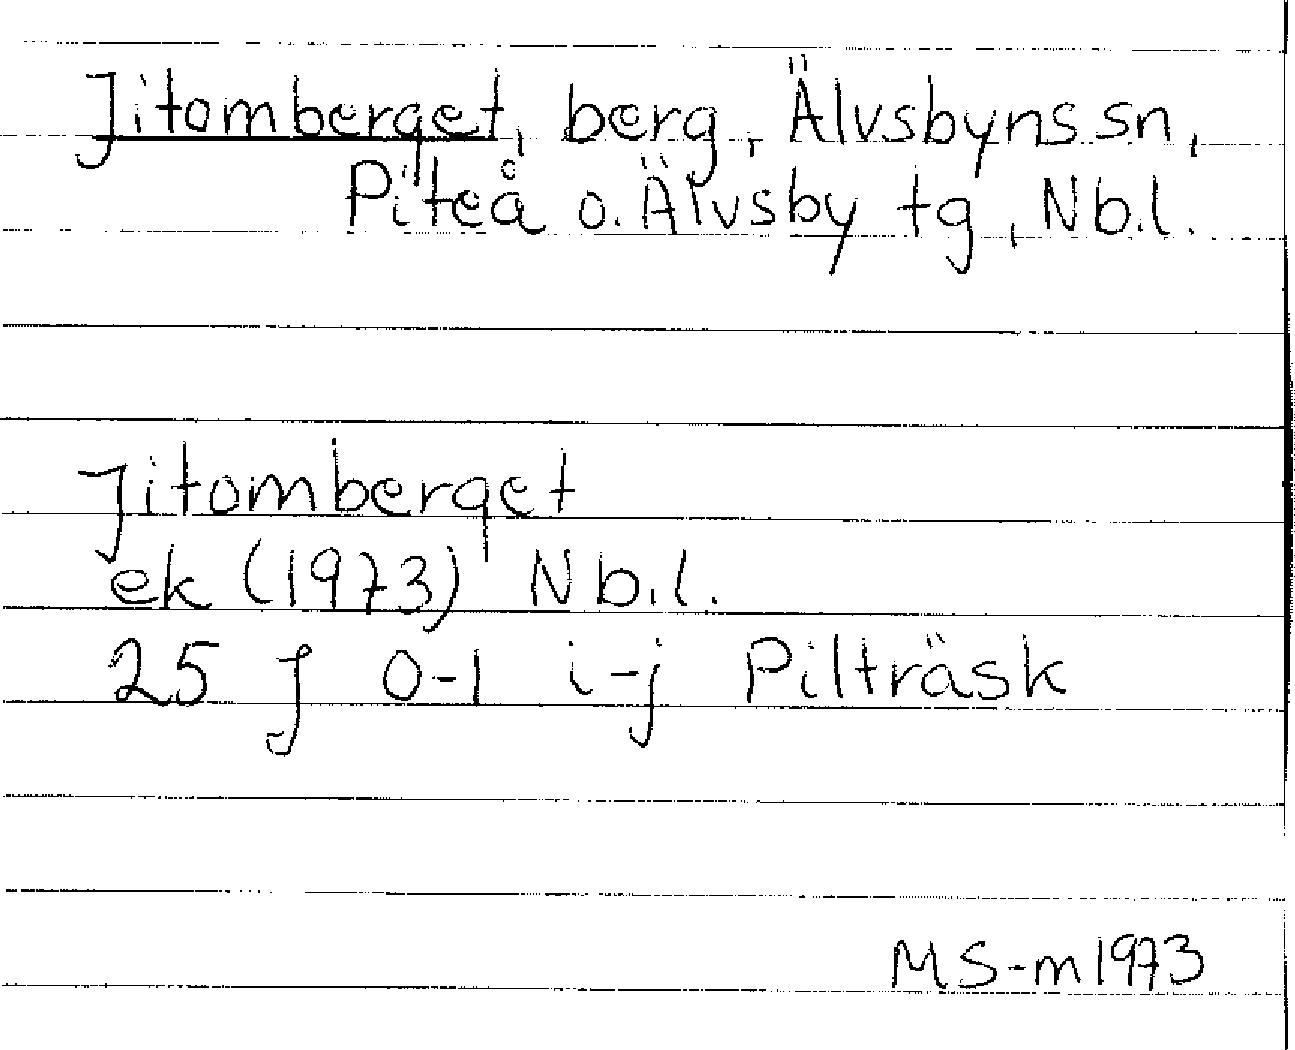 Jitomberget, berg, Älvsbyns sn,
Piteå o. Älvsby tg, Nb.l.
Jitomberget
ek (1973) Nb.l.
25 J 0-1 i-j Pilträsk
MS-m1973